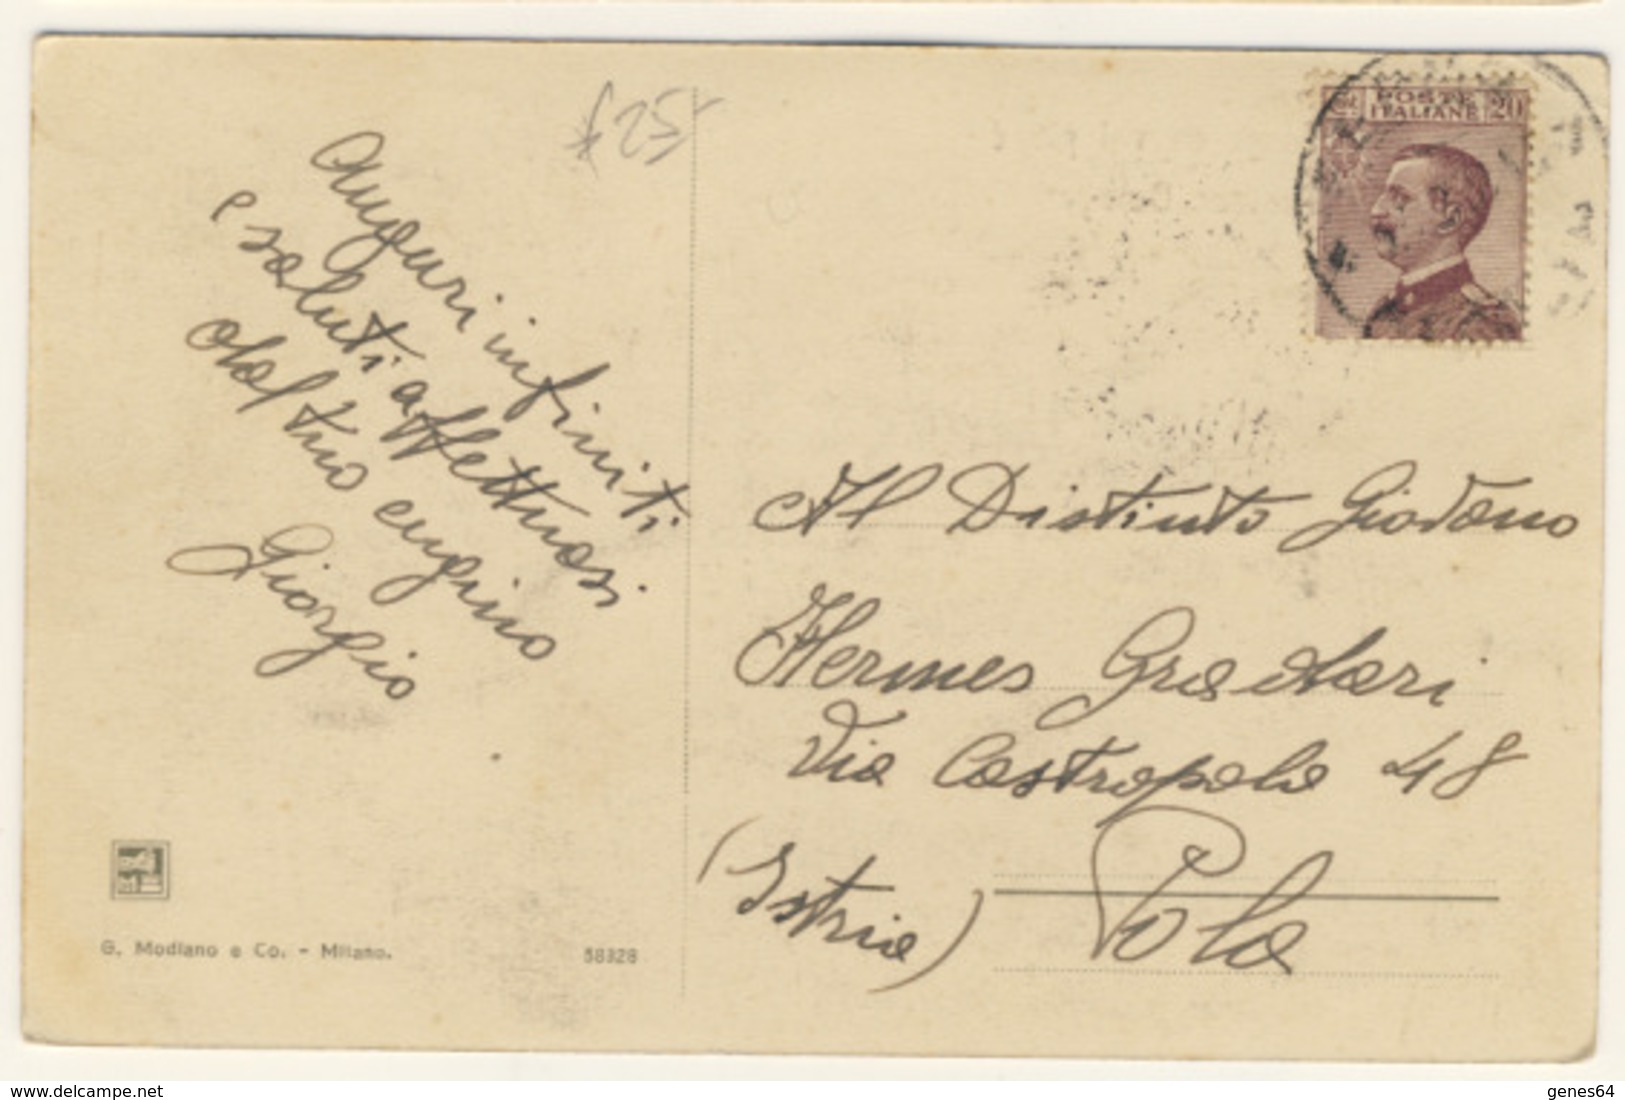 £ 25
Auguri infiniti
e saluti affettuosi
dal tuo cugino
Giorgio
G. Modiano e Co. - Milano.
58328
POSTE
ITALIANE
20
Al Distinto Giovano
Hermes
Via Castropola 48
(Istria)
Pola
www.delcampe.net
genes64